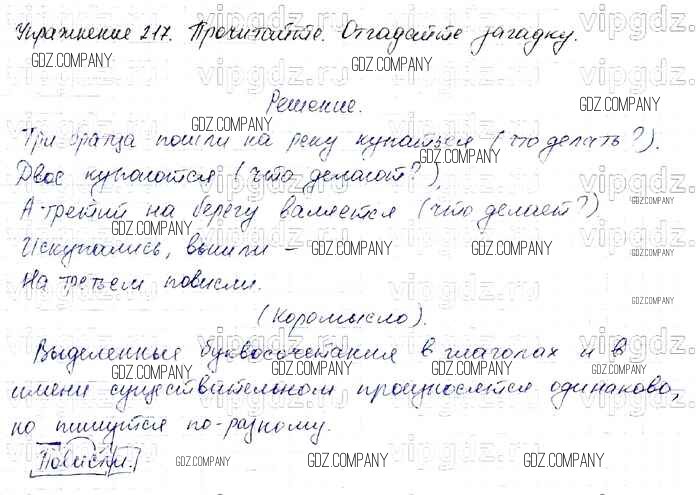 Упражнение 217. Прочитайте. Отгадайте загадку.
Решение.
Три братца пошли на реку купаться (что делать?).
Двое купаются (что делают?),
А третий на берегу валяется (что делает?)
Искупались, вышли –
На третьем повисли.
(Коромысло).
Выделенные буквосочетания в глаголах и в
имени существительном произносятся одинаково,
но пишутся по-разному.
Повисли.
GDZ.COMPANY
vipgdz.ru